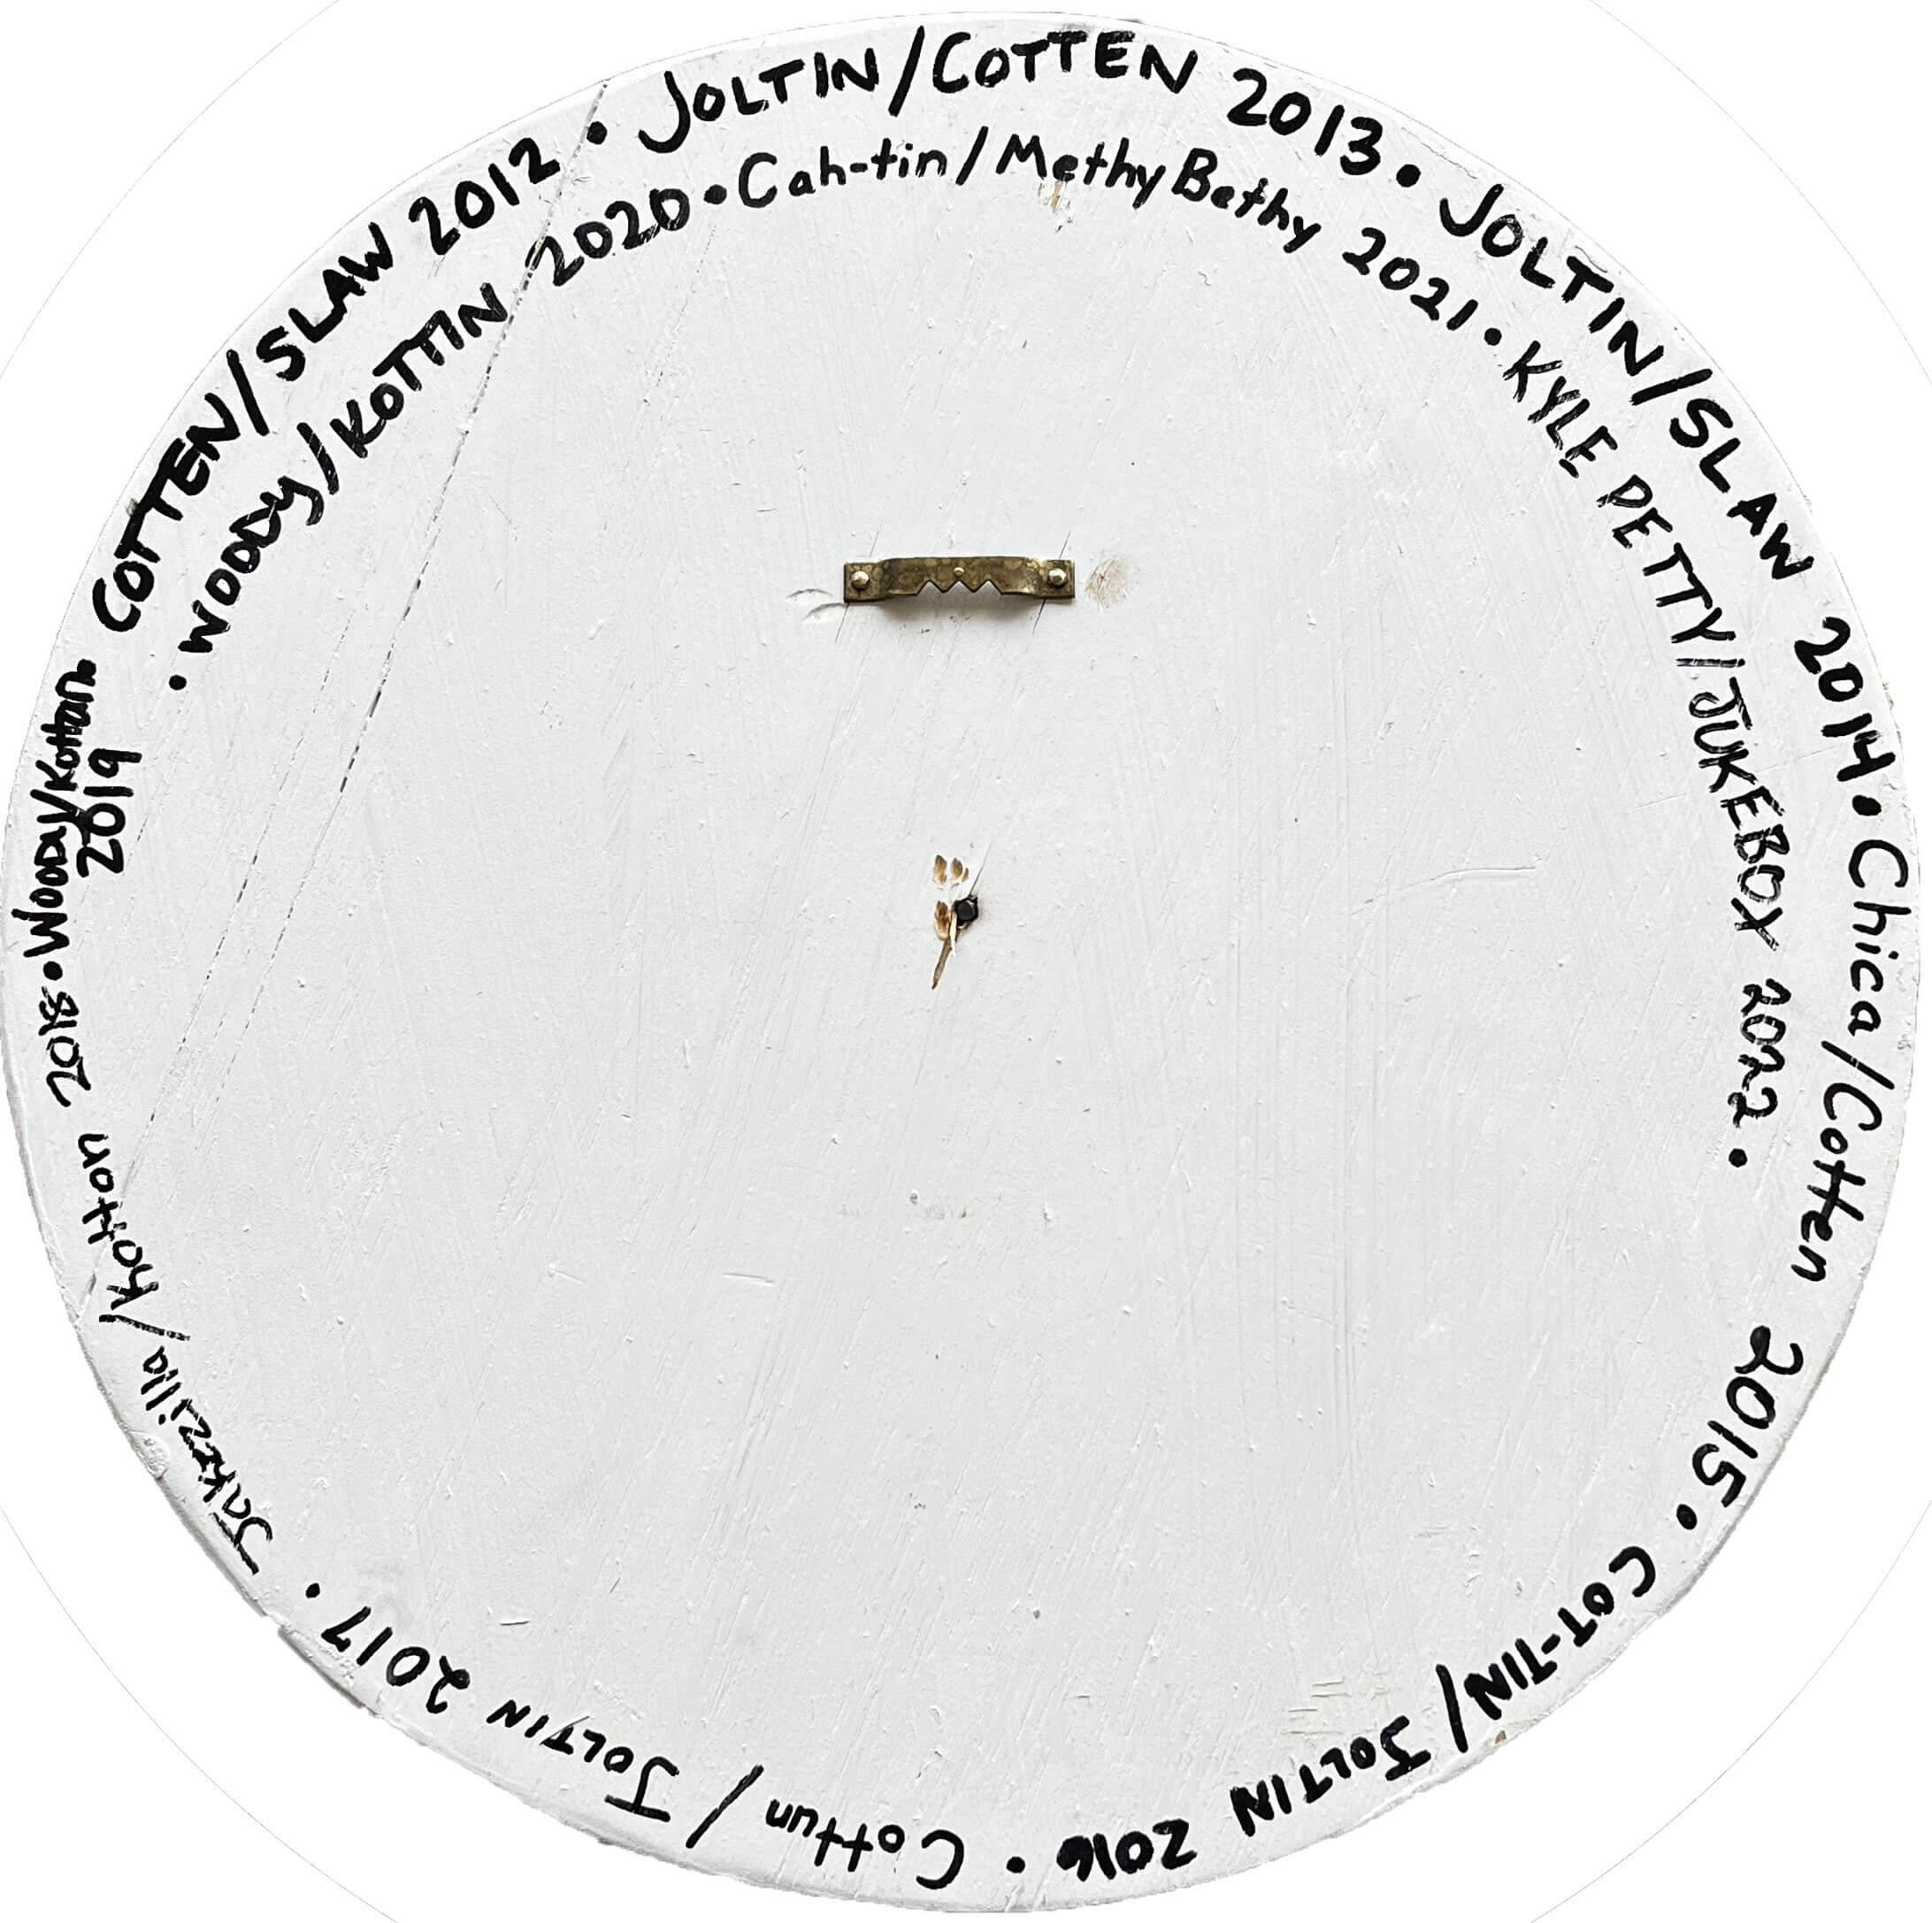 COTTEN/SLAW 2012 • JOLTIN/COTTEN 2013 • JOLTIN/SLAW 2014 • Chica/Cotten 2015 • COT-TIN/JOLTIN 2016 • Cottun/JOLTIN 2017 • JAKEzilla/Kotton 2018 • WOODy/Kottan 2019 •
• WOODy/KOTTIN 2020 • Cah-tin/MethyBethy 2021 • KYLE PETTY/JUKEBOX 2022 •